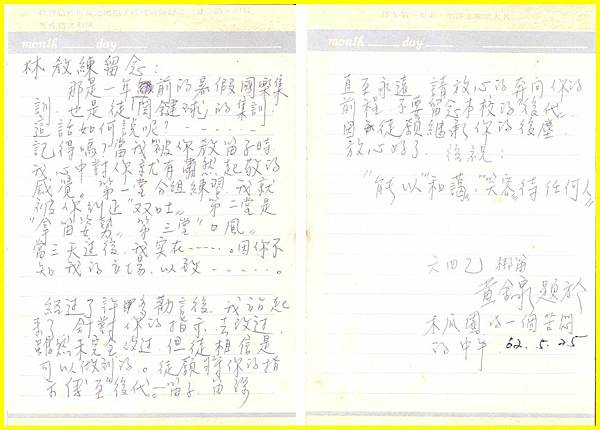 month day
林教練留念：
那是一年前的暑假國樂集
訓，也是徒「關鍵球」的集訓．
這話如何說呢？－－－－－－
記得嗎？當我被你教笛子時
我心中對你就有肅然起敬的
感覺。第一堂分組練習，我就
被你糾正"双吐"，第二堂是
"拿笛姿勢"，第三堂"口風"。
當三天過後，我實在……。因你不
知我的立場，以致－－－－－－。
經過了許多勸言後，我訪起
來了，針對你的指示，去改過，
雖然未完全改過，但徒相信是
可以做到的。徒願將你的指
示傳至"後代"－笛子，笛隊
month day
直至永遠，請放心的奔向你的
前程，不要留念本校的"後代"
因徒願繼承你的後塵，
放心好了．徒祝：
"能以"和藹，"笑容"待任何人"
六四乙 梆笛
黃 題於
木瓜園的一個苦悶
的中午．62.5.25